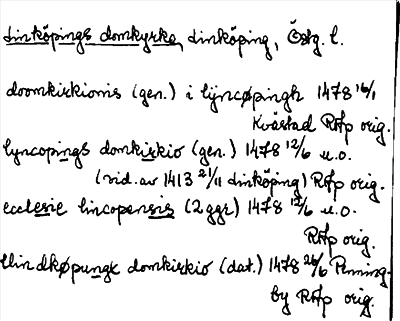 Linköpings domkyrka, Linköping, Östg. l.
doomkirkionis (gen.) i lÿncøpingh 1478 16/1
Kvästad RAp orig.
lyncopings domkirkio (gen.) 1478 12/6 u.o.
(vid. av 1413 21/11 Linköping) RAp orig.
ecclesie lincopensis (2 ggr) 1478 12/6 u.o.
RAp orig.
llindkøpungx domkirkio (dat.) 1478 26/6 Penning-
by RAp orig.